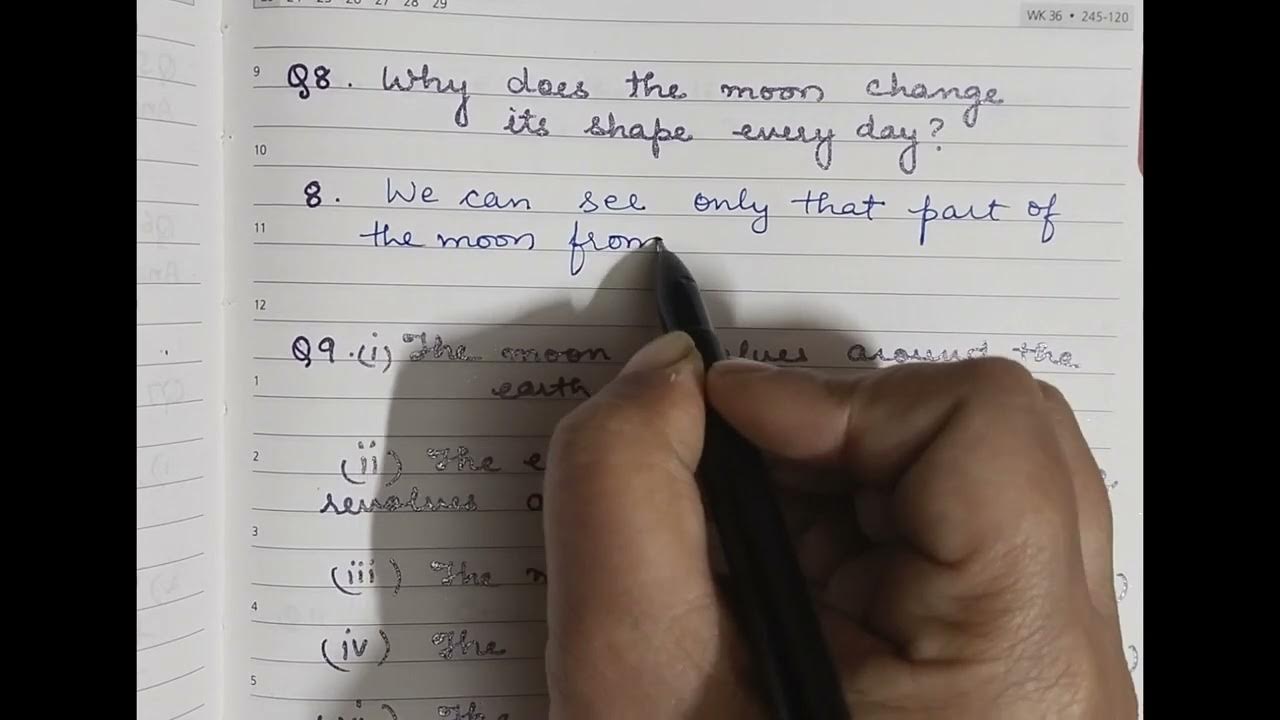 27 28 29
WK 36 • 245-120
9 Q8. Why does the moon change
its shape every day?
10
8. We can see only that part of
11 the moon from
12
Q9.(i) The moon around the
1 earth
2 (ii) The
revolves
3
(iii) The
4
(iv) The
5
The